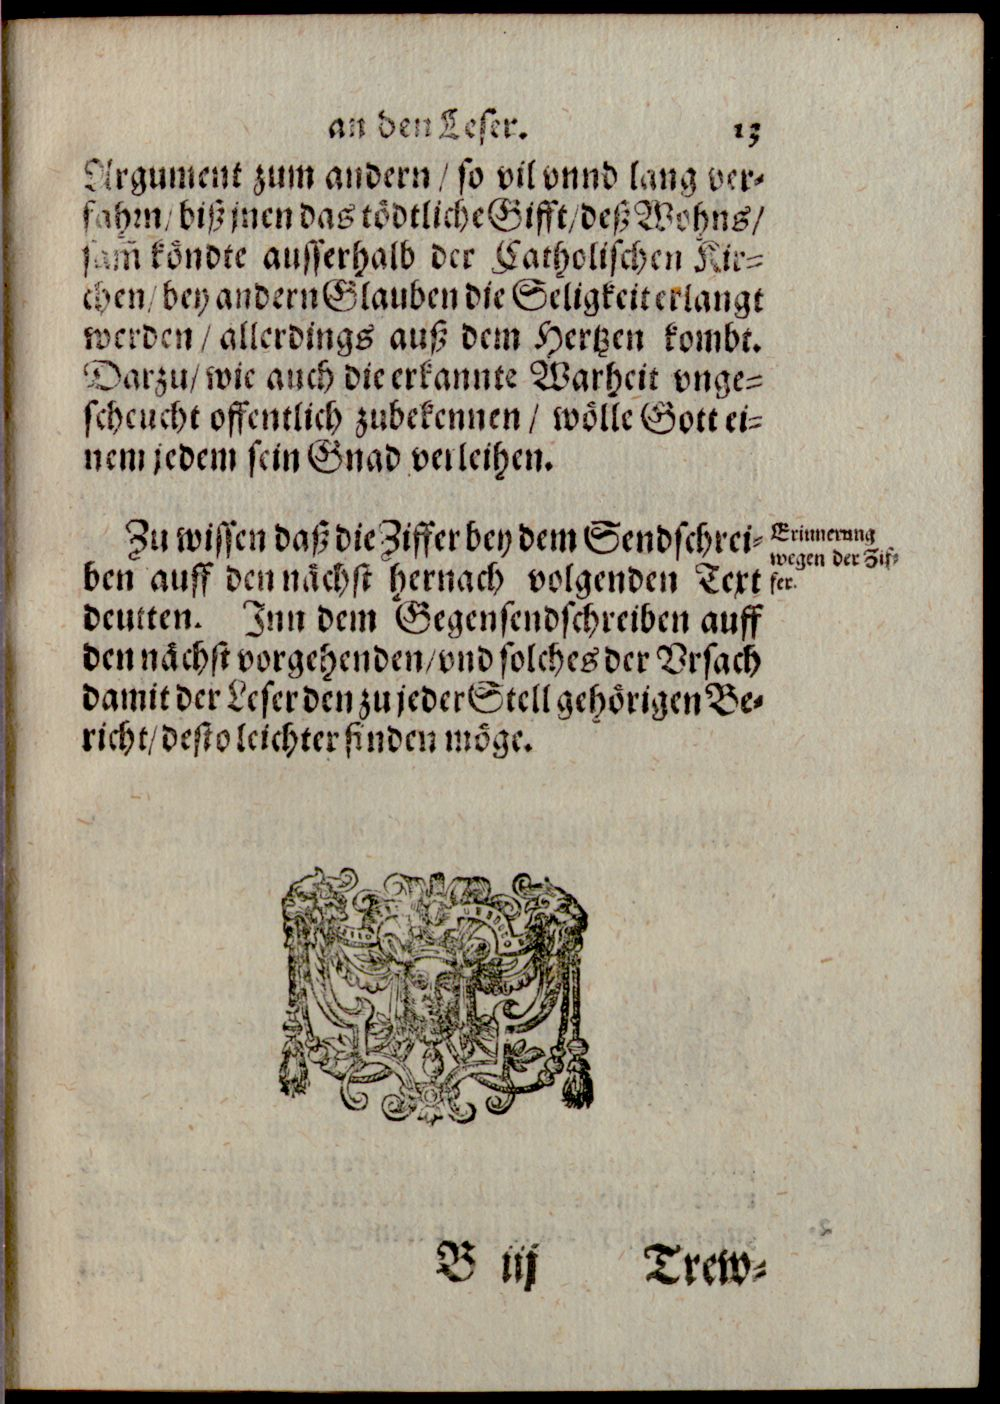 an den Leser. 13
Argument zum andern / so vil vnnd lang ver-
fahrn / biß jnen das tödtliche Gifft / deß Wohns /
sam̄ köndte ausserhalb der Catholischen Kir-
chen / bey andern Glauben die Seligkeit erlangt
werden / allerdings auß dem Hertzen kombt.
Darzu / wie auch die erkannte Warheit vnge-
scheucht offentlich zubekennen / wölle Gott ei-
nem jedem sein Gnad verleihen.
Zu wissen daß die Ziffer bey dem Sendschrei-
ben auff den nächst hernach volgenden Text
deutten. Inn dem Gegensendschreiben auff
den nächst vorgehenden / vnd solches der Vrsach
damit der Leser den zu jeder Stell gehörigen Be-
richt / desto leichter finden möge.
Erinnerung
wegen der Zif-
fer.
B iij Trew-